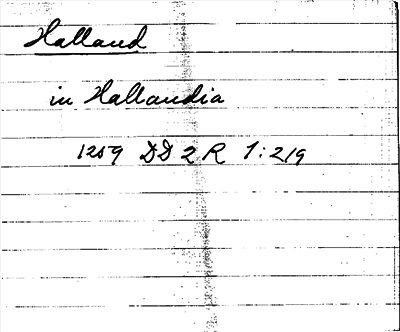 Halland
in Hallandia
1259 DD 2 R 1:219